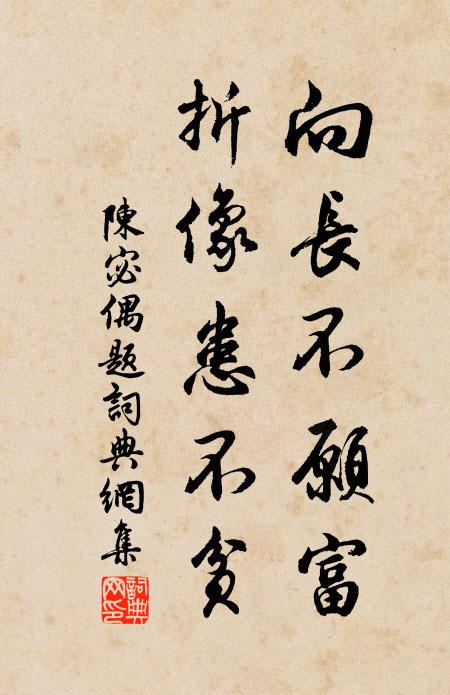 向長不願富
折像患不貧
陳宓偶題詞典網集
詞典网印